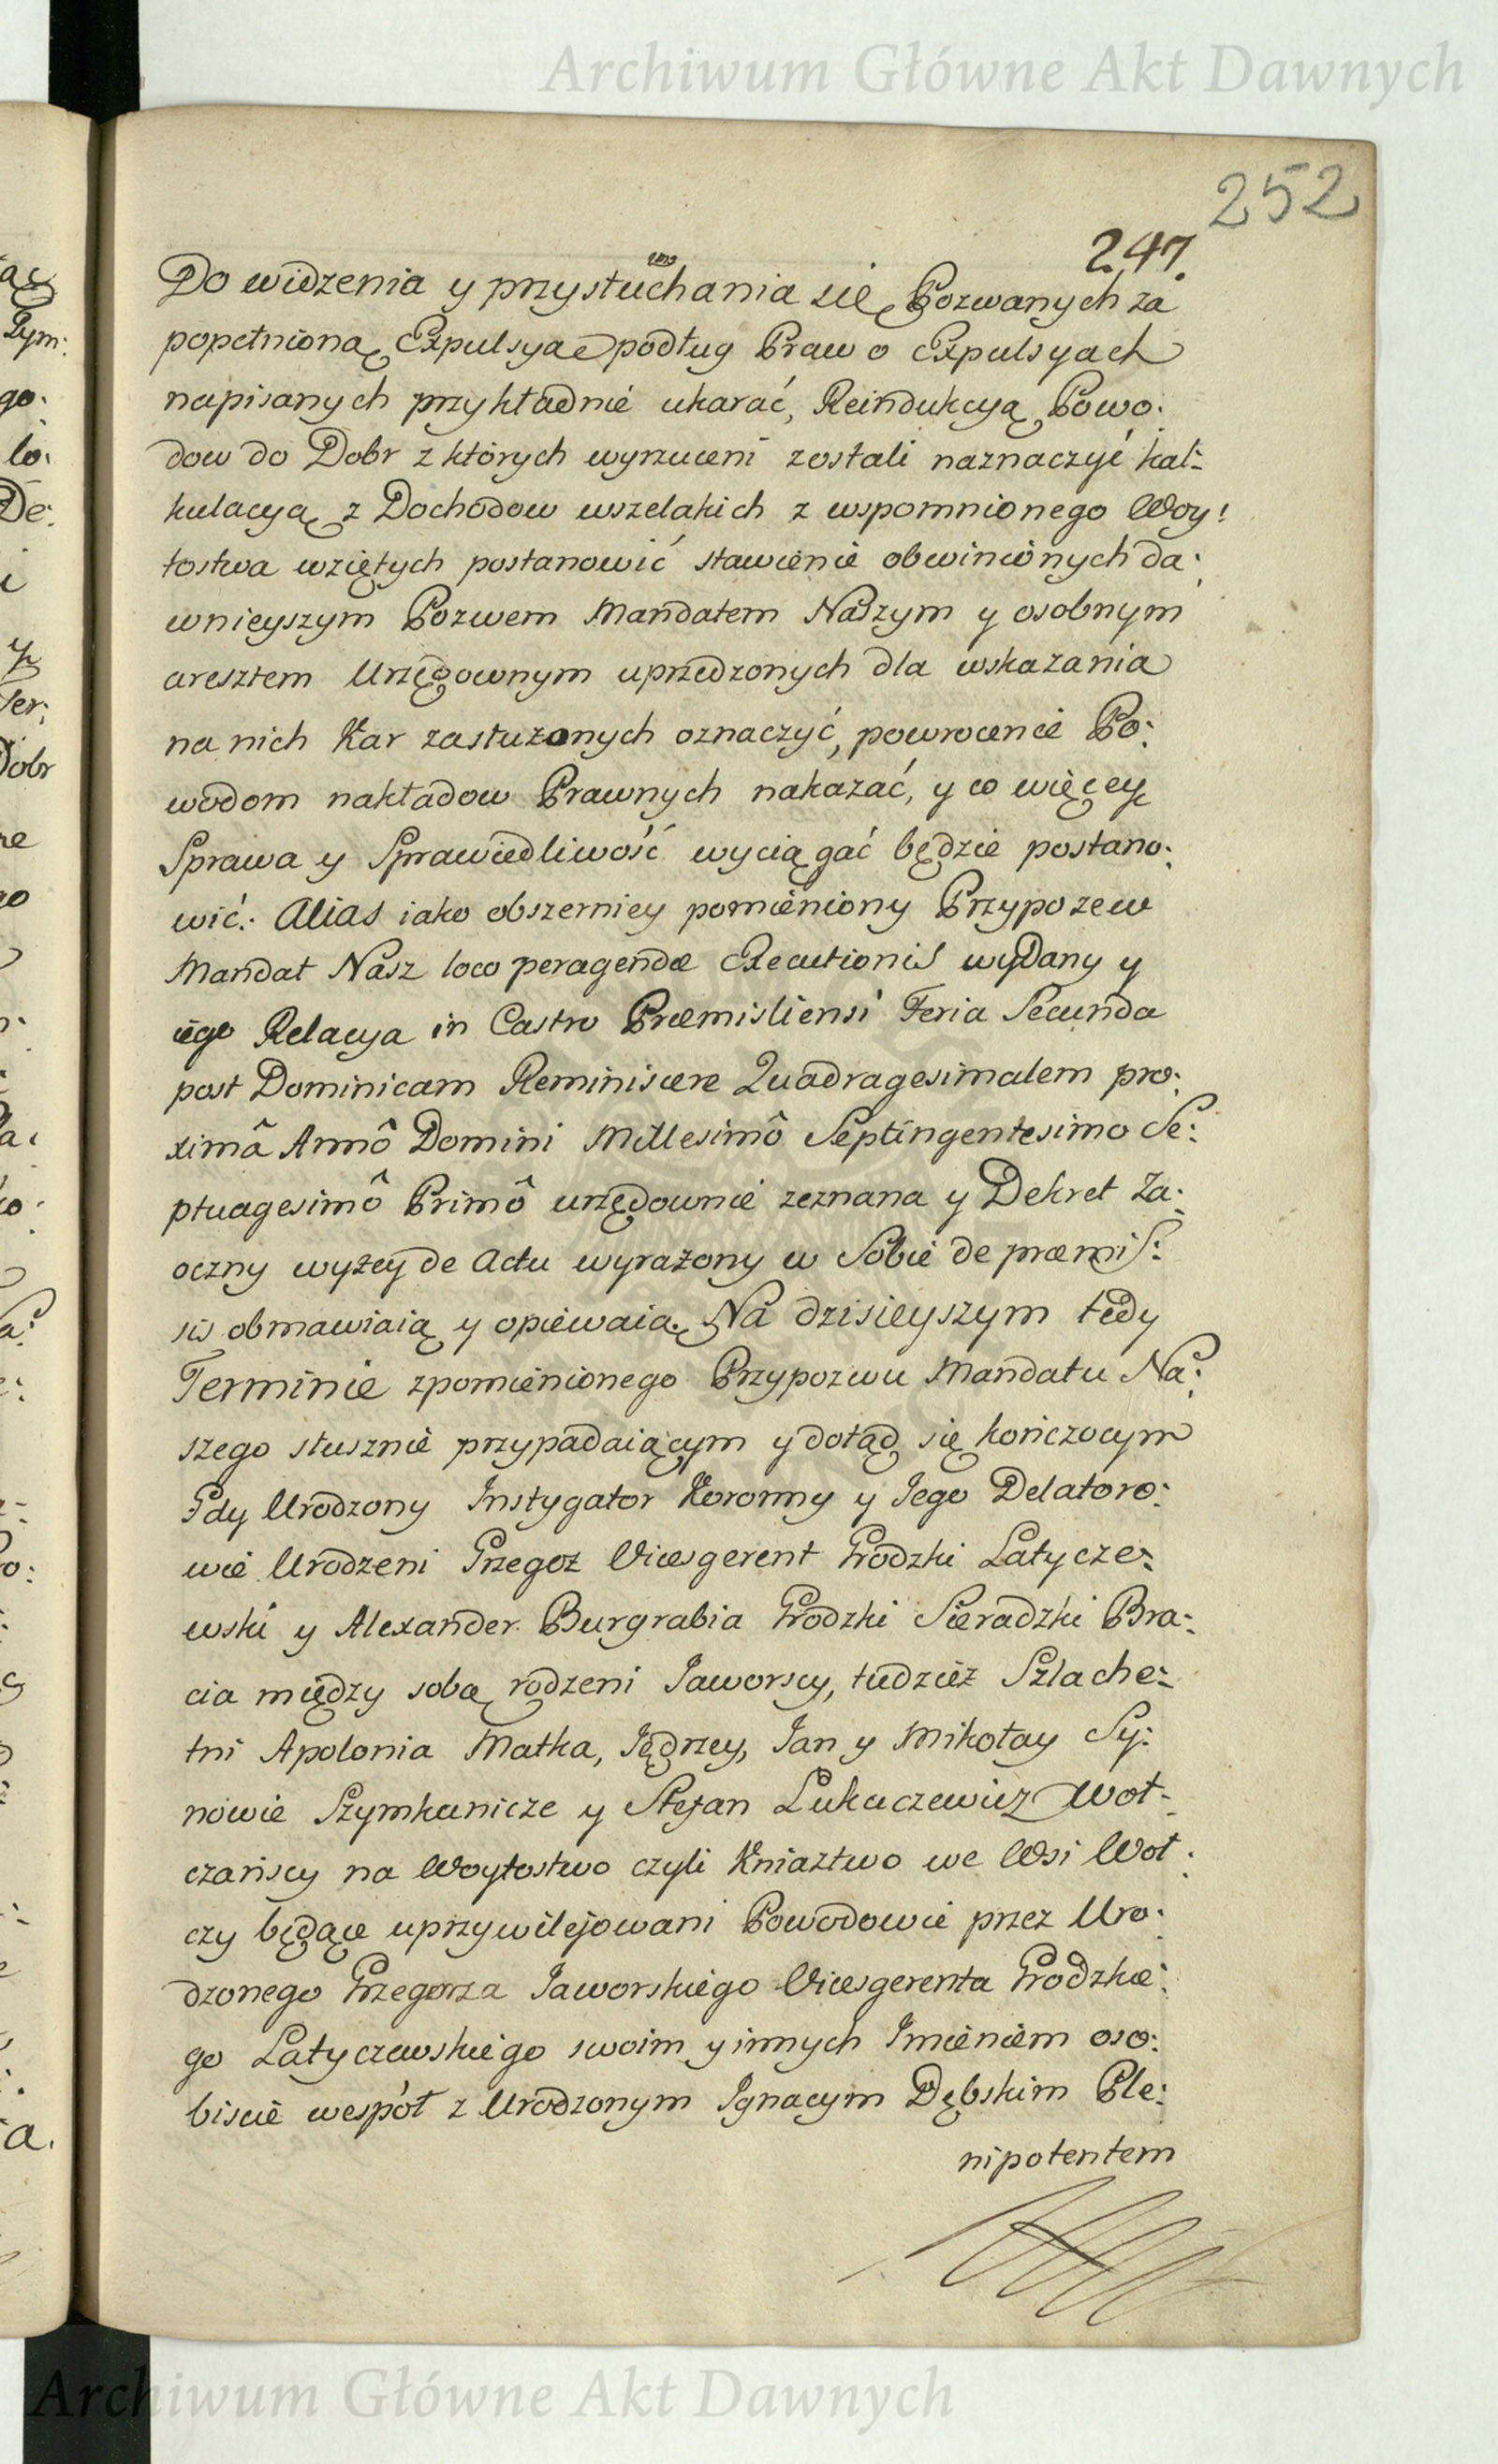 Archiwum Główne Akt Dawnych
252
247.
Do widzenia y przysłuchania się Pozwanych za
popełnioną Expulsyą podług Praw o Expulsyach
napisanych przykładnie ukarać, Reindukcyą Powo:
dow do Dobr z których wyrzuceni zostali naznaczyć kal:
kulacyą z Dochodow wszelakich z wspomnionego Woy:
tostwa wziętych postanowić stawienie obwinionych da:
wnieyszym Pozwem Mandatem Naszym y osobnym
aresztem Urzędownym uprzedzonych dla wskazania
na nich Kar zasłużonych oznaczyć, powrocenie Po:
wodom nakładow Prawnych nakazać, y co więcey
Sprawa y Sprawiedliwość wyciągać będzie postano:
wić: Alias iako obszerniey pomieniony Przypozew
Mandat Nasz loco peragendæ Executionis wydany y
iego Relacya in Castro Præmisliensi Feria Secunda
post Dominicam Reminiscere Quadragesimalem pro:
ximâ Annô Domini Millesimô Septingentesimo Se:
ptuagesimô Primô urzędownie zeznana y Dekret Za:
oczny wyżey de Actu wyrażony w Sobie de præmis:
sis obmawiaią y opiewaią. Na dzisieyszym tedy
Terminie zpomienionego Przypozwu Mandatu Na:
szego słusznie przypadaiącym y dotąd się kończocym
Gdy Urodzony Instygator Koronny y Jego Delatoro:
wie Urodzeni Grzegoz Vicesgerent Grodzki Latycze:
wski y Alexander Burgrabia Grodzki Sieradzki Bra:
cia między sobą rodzeni Jaworscy, tudzież Szlache:
tni Apolonia Matka, Jędrzey, Jan y Mikołay Sy:
nowie Szymkanicze y Stefan Lukaczewicz Woł:
czańscy na Woytostwo czyli Kniaztwo we Wsi Woł:
czy będące uprzywilejowani Powodowie przez Uro:
dzonego Grzegorza Jaworskiego Vicesgerenta Grodzkie:
go Latyczewskiego swoim y innych Imieniem oso:
biscie wespół z Urodzonym Ignacym Dębskim Ple:
nipotentem
Archiwum Główne Akt Dawnych